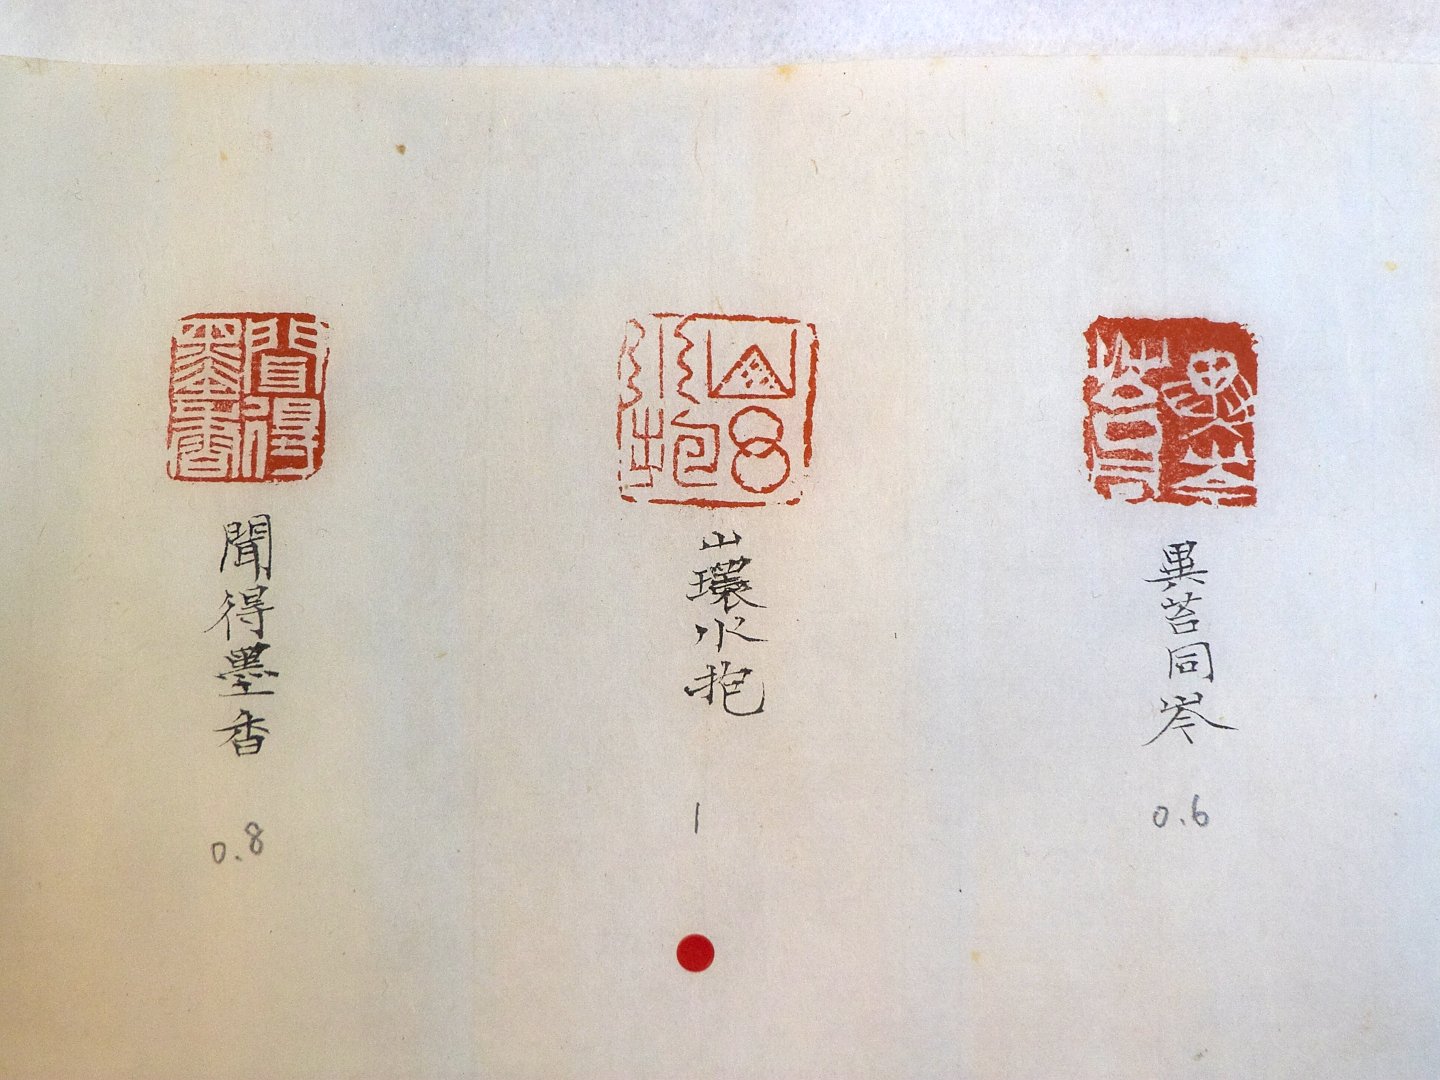 聞得墨香
0.8
山環水抱
1
異苔同岑
0.6